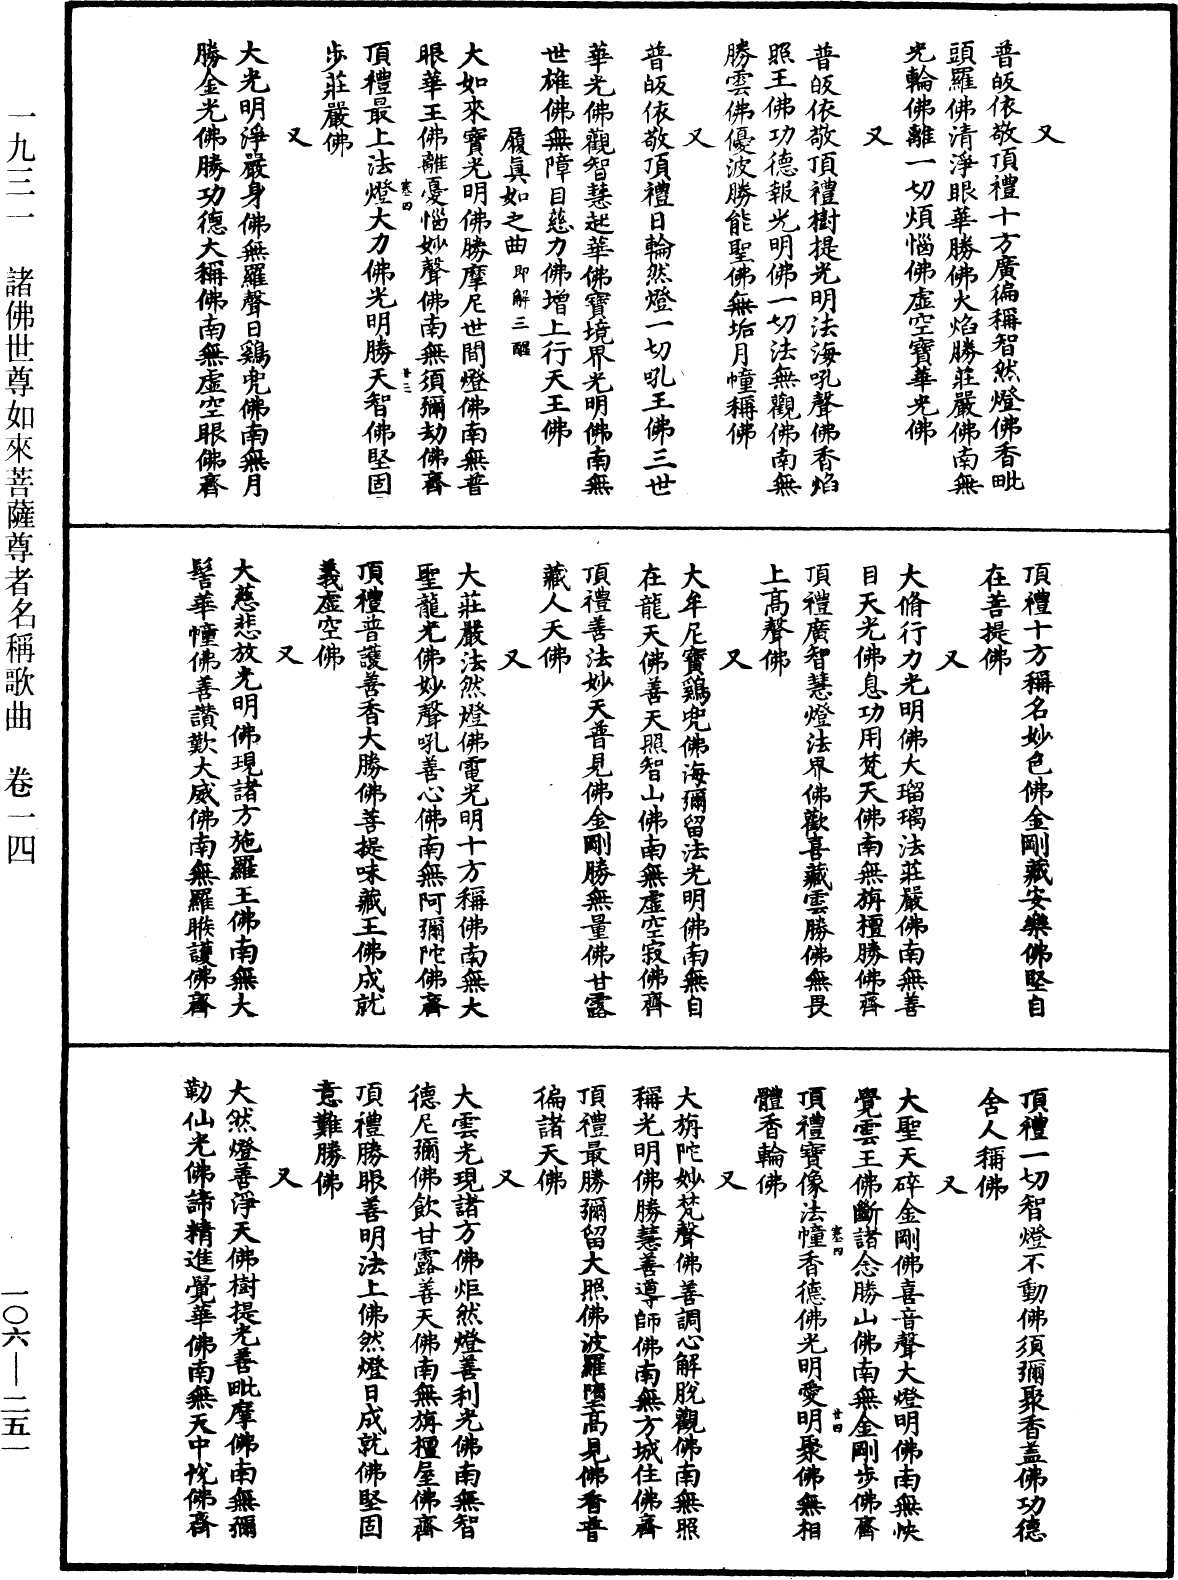 又
普皈依敬頂禮十方廣徧稱智然燈佛香毗
頭羅佛清淨眼華勝佛火焰勝莊嚴佛南無
光輪佛離一切煩惱佛虛空寶華光佛
又
普皈依敬頂禮樹提光明法海吼聲佛香焰
照王佛功德報光明佛一切法無觀佛南無
勝雲佛優波勝能聖佛無垢月幢稱佛
又
普皈依敬頂禮日輪然燈一切吼王佛三世
華光佛觀智慧起華佛寶境界光明佛南無
世雄佛無障目慈力佛增上行天王佛
履真如之曲 即解三醒
大如來寶光明佛勝摩尼世間燈佛南無普
眼華王佛離憂惱妙聲佛南無須彌劫佛齊
頂禮最上法燈大力佛光明勝天智佛堅固
步莊嚴佛
又
大光明淨嚴身佛無羅聲日鷄兜佛南無月
勝金光佛勝功德大稱佛南無虛空眼佛齊
頂禮十方稱名妙色佛金剛藏安樂佛堅自
在菩提佛
又
大脩行力光明佛大瑠璃法莊嚴佛南無善
目天光佛息功用梵天佛南無旃檀勝佛齊
頂禮廣智慧燈法界佛歡喜藏雲勝佛無畏
上高聲佛
又
大牟尼寶鷄兜佛海彌留法光明佛南無自
在龍天佛善天照智山佛南無虛空寂佛齊
頂禮善法妙天普見佛金剛勝無量佛甘露
藏人天佛
又
大莊嚴法然燈佛電光明十方稱佛南無大
聖龍光佛妙聲吼善心佛南無阿彌陀佛齊
頂禮普護善香大勝佛菩提味藏王佛成就
義虛空佛
又
大慈悲放光明佛現諸方施羅王佛南無大
髻華幢佛善讚歎大威佛南無羅睺護佛齊
頂禮一切智燈不動佛須彌聚香蓋佛功德
舍人稱佛
又
大聖天碎金剛佛喜音聲大燈明佛南無快
覺雲王佛斷諸念勝山佛南無金剛步佛齊
頂禮寶像法幢香德佛光明愛明聚佛無相
體香輪佛
又
大旃陀妙梵聲佛善調心解脫觀佛南無照
稱光明佛勝慧善導師佛南無方城住佛齊
頂禮最勝彌留大照佛波羅墮高見佛香普
徧諸天佛
又
大雲光現諸方佛炬然燈善利光佛南無智
德尼彌佛飲甘露善天佛南無旃檀屋佛齊
頂禮勝眼善明法上佛然燈日成就佛堅固
意難勝佛
又
大然燈善淨天佛樹提光善毗摩佛南無彌
勒仙光佛諦精進覺華佛南無天中悅佛齊
一九三一 諸佛世尊如來菩薩尊者名稱歌曲 卷一四
一〇六—二五一